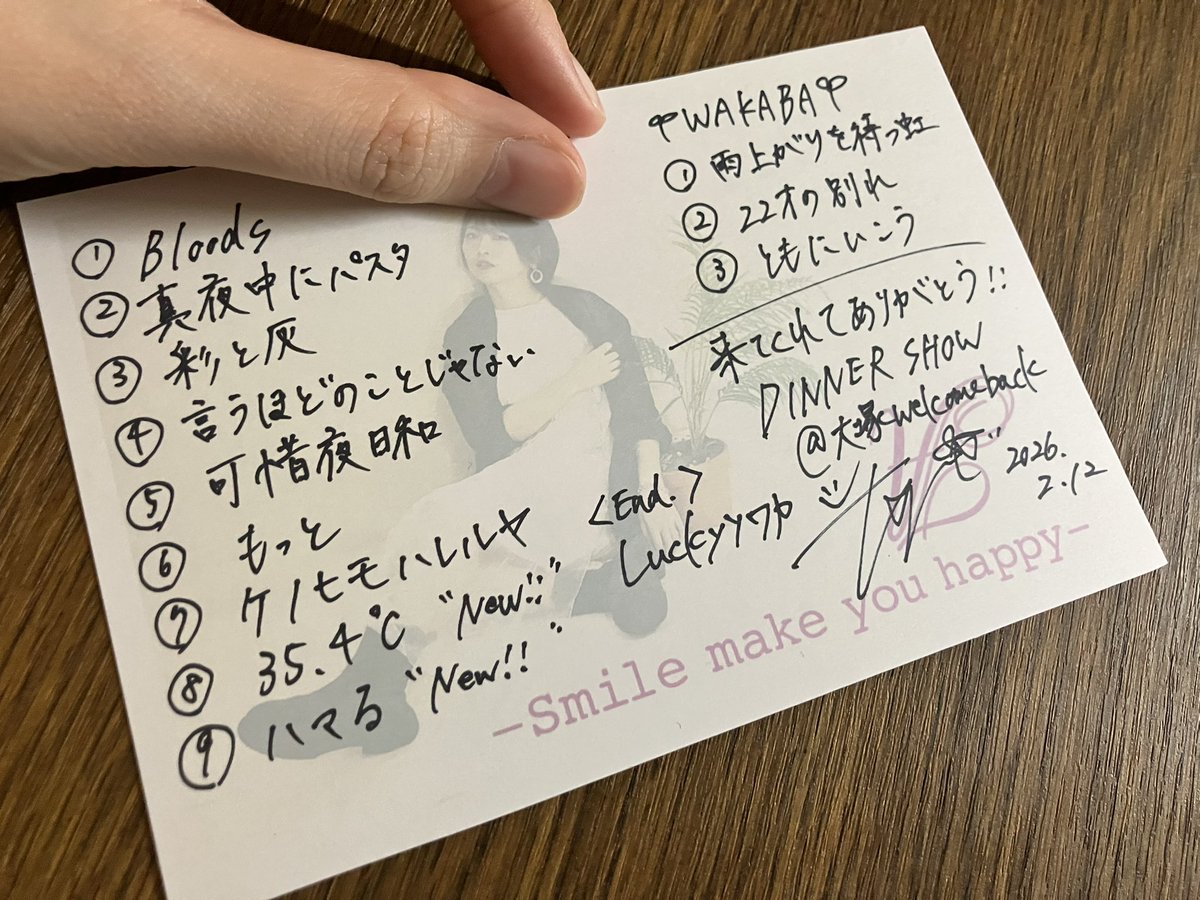 ① Bloods
② 真夜中にパスタ
③ 彩と灰
④ 言うほどのことじゃない
⑤ 可惜夜日和
⑥ もっと
⑦ ケノヒモハレルヤ
⑧ 35.4℃ "New!!"
⑨ ハマる "New!!"
WAKABA
① 雨上がりを待つ虹
② 22才の別れ
③ ともにいこう
来てくれてありがとう!!
DINNER SHOW
@大塚welcomeback
<End.>
Luckyyワカ
2026.
2.12
-Smile make you happy-